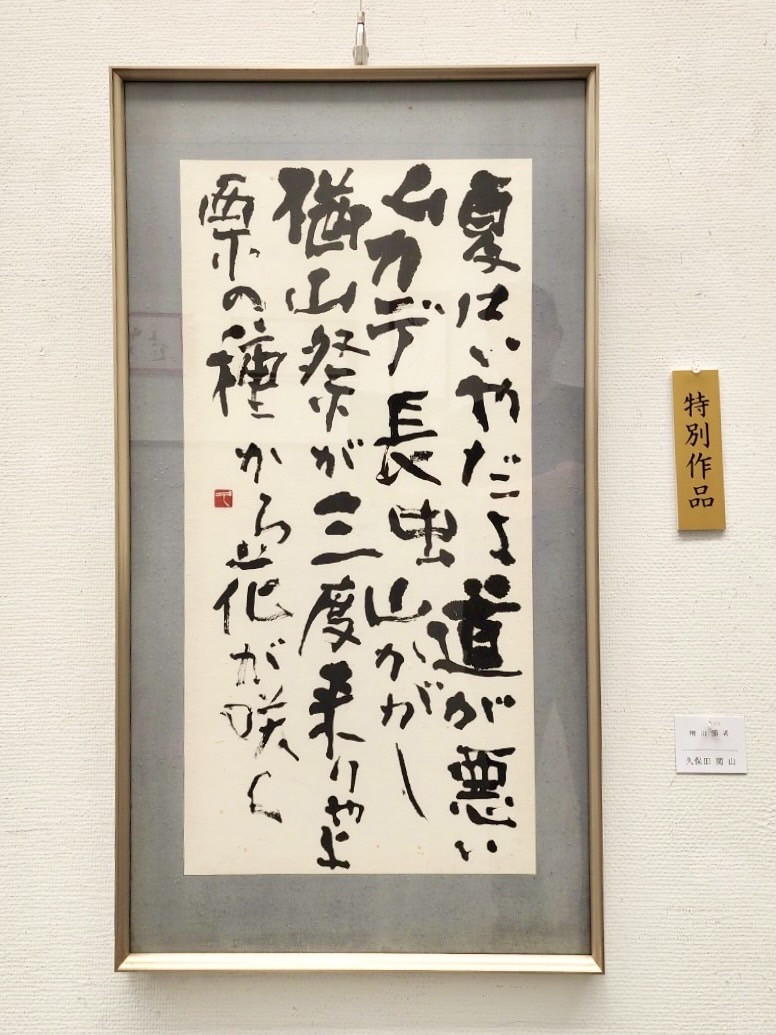 夏はいやだよ道が悪い
ムカデ長虫山かがし
楢山祭が三度来りゃよ
栗の種から花が咲く
特別作品
久保田 山